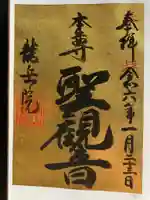 奉拝 令和六年一月二十三日
本尊
聖観音
龍岳院